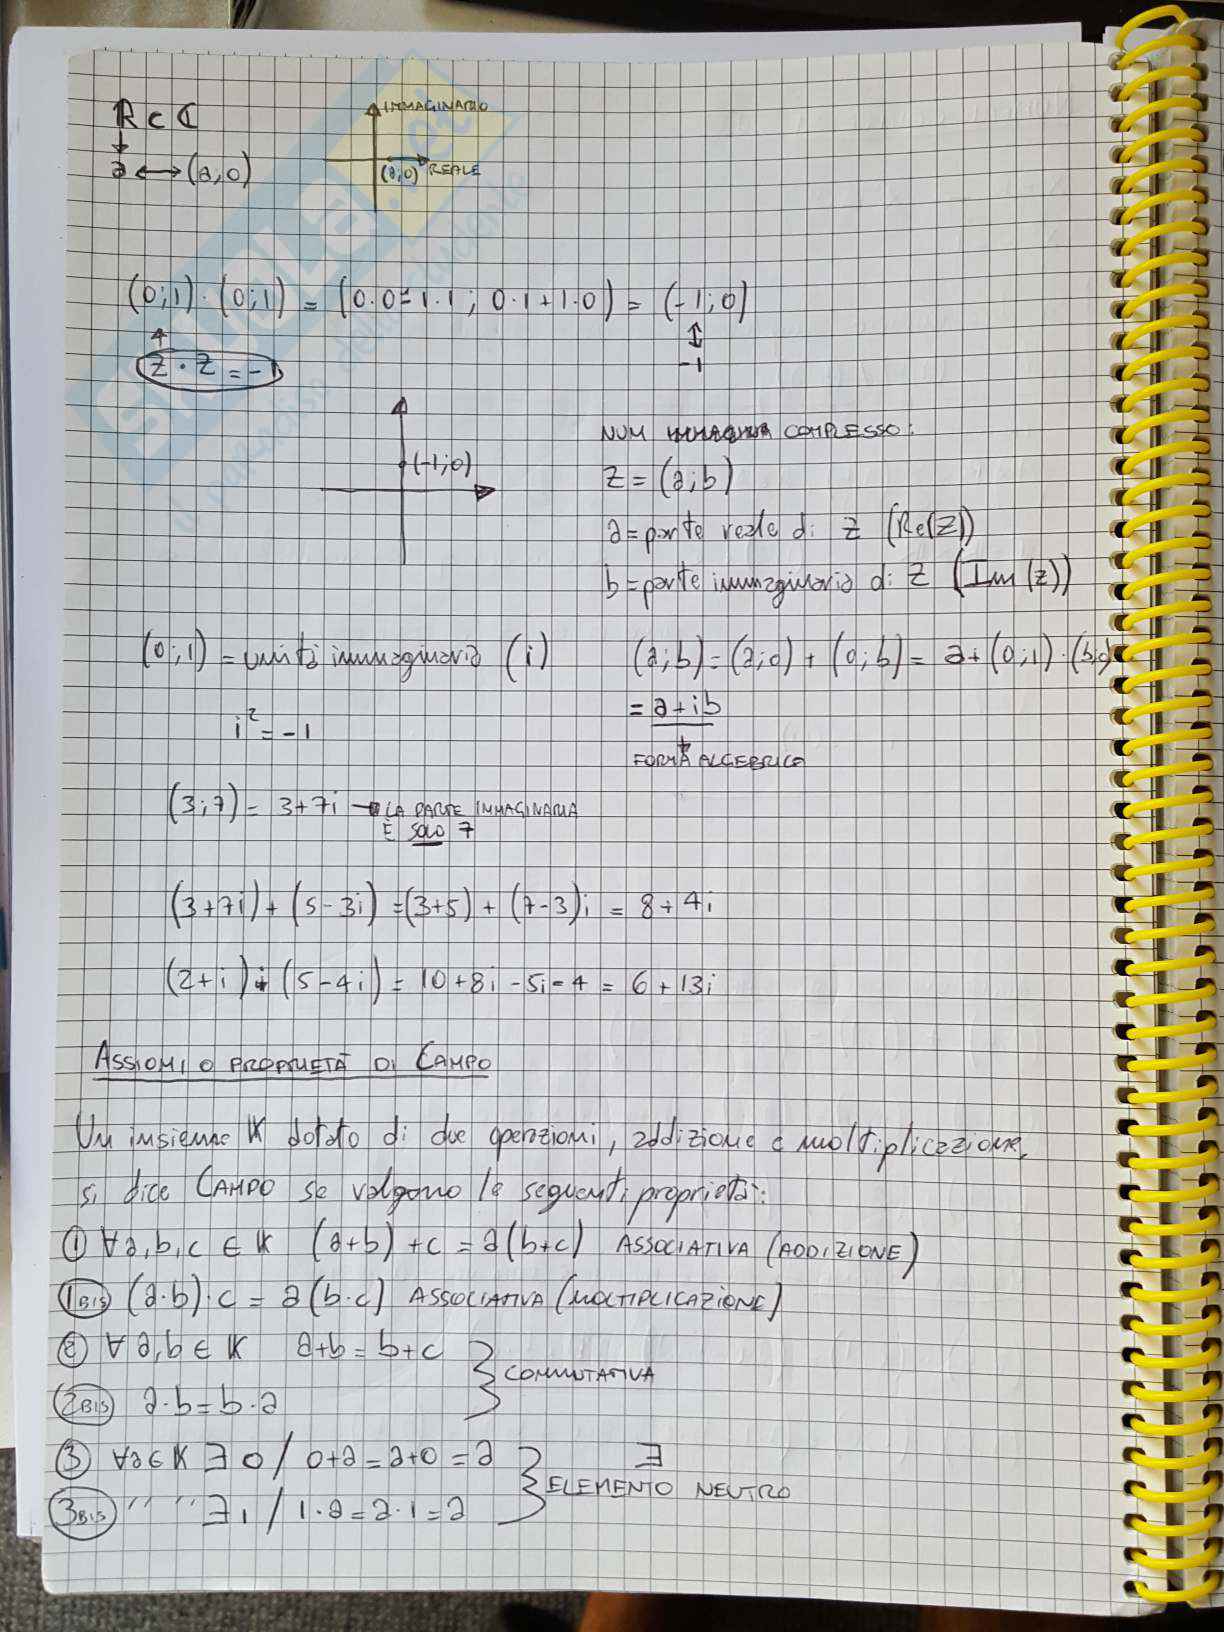 R ⊂ ℂ
IMMAGINARIO
a ↔ (a,0)
(a;0) REALE
(0;1)·(0;1) = (0·0-1·1; 0·1+1·0) = (-1;0)
-1
z · z = -1
(-1;0)
NUM COMPLESSO:
z = (a;b)
a = parte reale di z (Re(z))
b = parte immaginaria di z (Im(z))
(0;1) = unità immaginaria (i)
(a;b) = (a;0) + (0;b) = a + (0;1)·(b;0)
= a+ib
i² = -1
FORMA ALGEBRICA
(3;7) = 3+7i → LA PARTE IMMAGINARIA
È SOLO 7
(3+7i) + (5-3i) = (3+5) + (7-3)i = 8+4i
(2+i) · (5-4i) = 10+8i -5i-4 = 6+13i
ASSIOMI O PROPRIETÀ DI CAMPO
Un insieme K dotato di due operazioni, addizione e moltiplicazione,
si dice CAMPO se valgono le seguenti proprietà:
① ∀a,b,c ∈ K (a+b)+c = a(b+c) ASSOCIATIVA (ADDIZIONE)
1BIS (a·b)·c = a(b·c) ASSOCIATIVA (MOLTIPLICAZIONE)
② ∀a,b ∈ K a+b = b+c
COMMUTATIVA
2BIS a·b = b·a
③ ∀a∈K ∃ 0 / 0+a = a+0 = a ∃
ELEMENTO NEUTRO
3BIS " " ∃ 1 / 1·a = a·1 = a